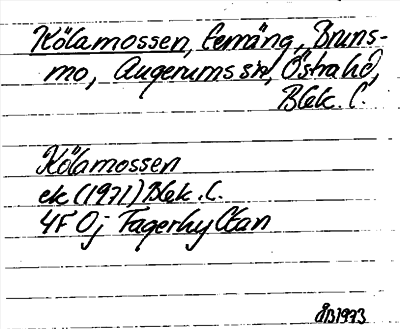 Kölamossen, lemäng, Bruns-
mo, Augerums sn, Östra hd,
Blek. l.
Kölamossen
ek (1971) Blek. l.
4F 0j Fagerhyltan
ÅB 1973